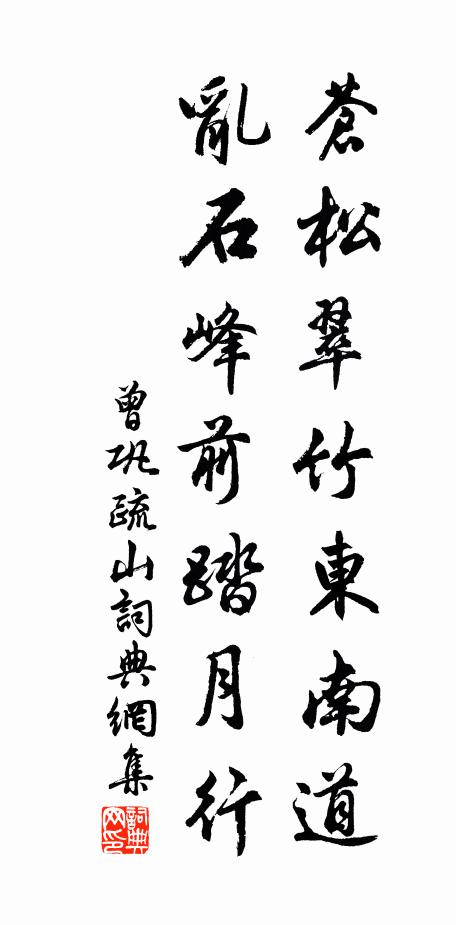 蒼松翠竹東南道
亂石峰前踏月行
曾巩疏山詞典網集
詞典网印